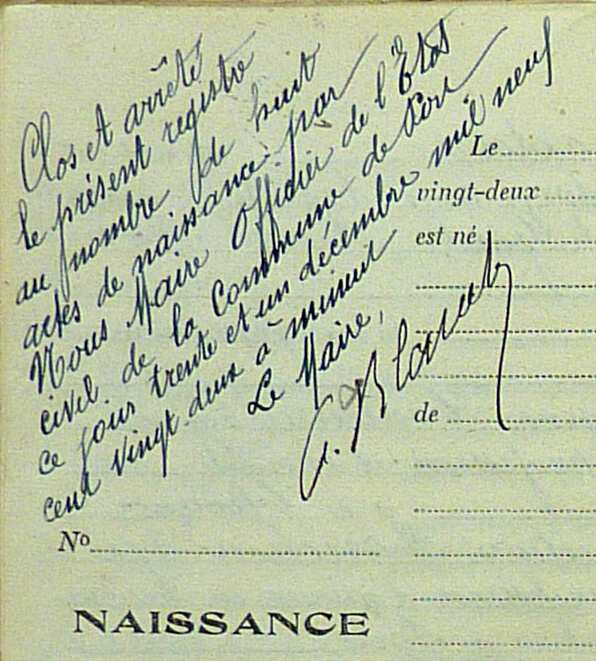 Clos et arrêté
le présent registre
au nombre de huit
actes de naissance par
Nous Maire Officier de l'Etat
civil de la Commune de
ce jour trente et un décembre mil neuf
cent vingt-deux à minuit
Le Maire,
NO
NAISSANCE
Le
vingt-deux
est né
de